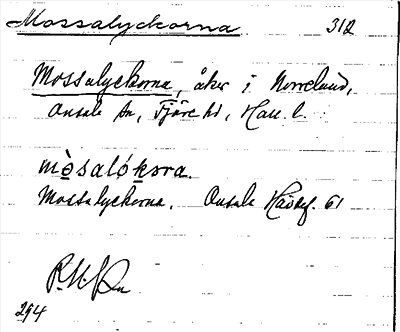 Mossalyckorna 312
Mossalyckorna, åker i Norrelund,
Onsala sn, Fjäre hd, Hall. l.
mòsalókṣra.
Mossalyckorna. Onsala Häradsf. 61
294